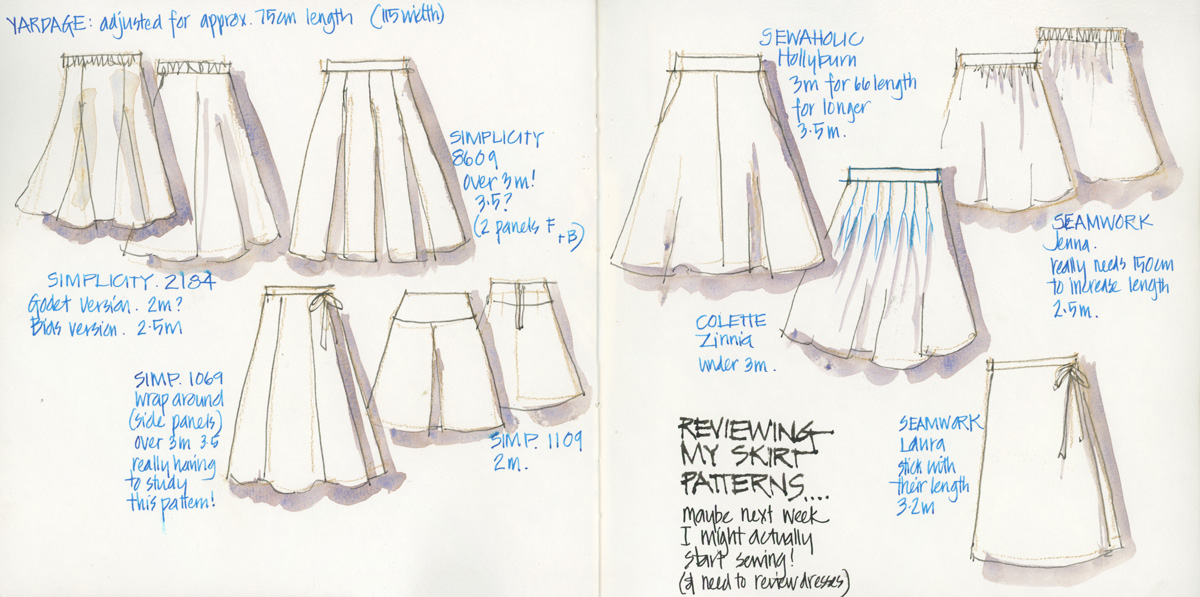 YARDAGE: adjusted for approx. 75cm length (115 width)
SIMPLICITY
8609
over 3m!
3.5?
(2 panels F
+B)
SIMPLICITY. 2184
Godet version. 2m?
Bias version. 2.5m
SIMP. 1069
wrap around
(side panels)
over 3m 3.5
really having
to study
this pattern!
SIMP. 1109
2m.
SEWAHOLIC
Hollyburn
3m for 66 length
for longer
3.5m.
SEAMWORK
Jenna.
really needs 150cm
to increase length
2.5m.
COLETTE
Zinnia
under 3m.
REVIEWING
MY SKIRT
PATTERNS....
maybe next week
I might actually
start sewing!
(& need to review dresses)
SEAMWORK
Laura
stick with
their length
3.2m